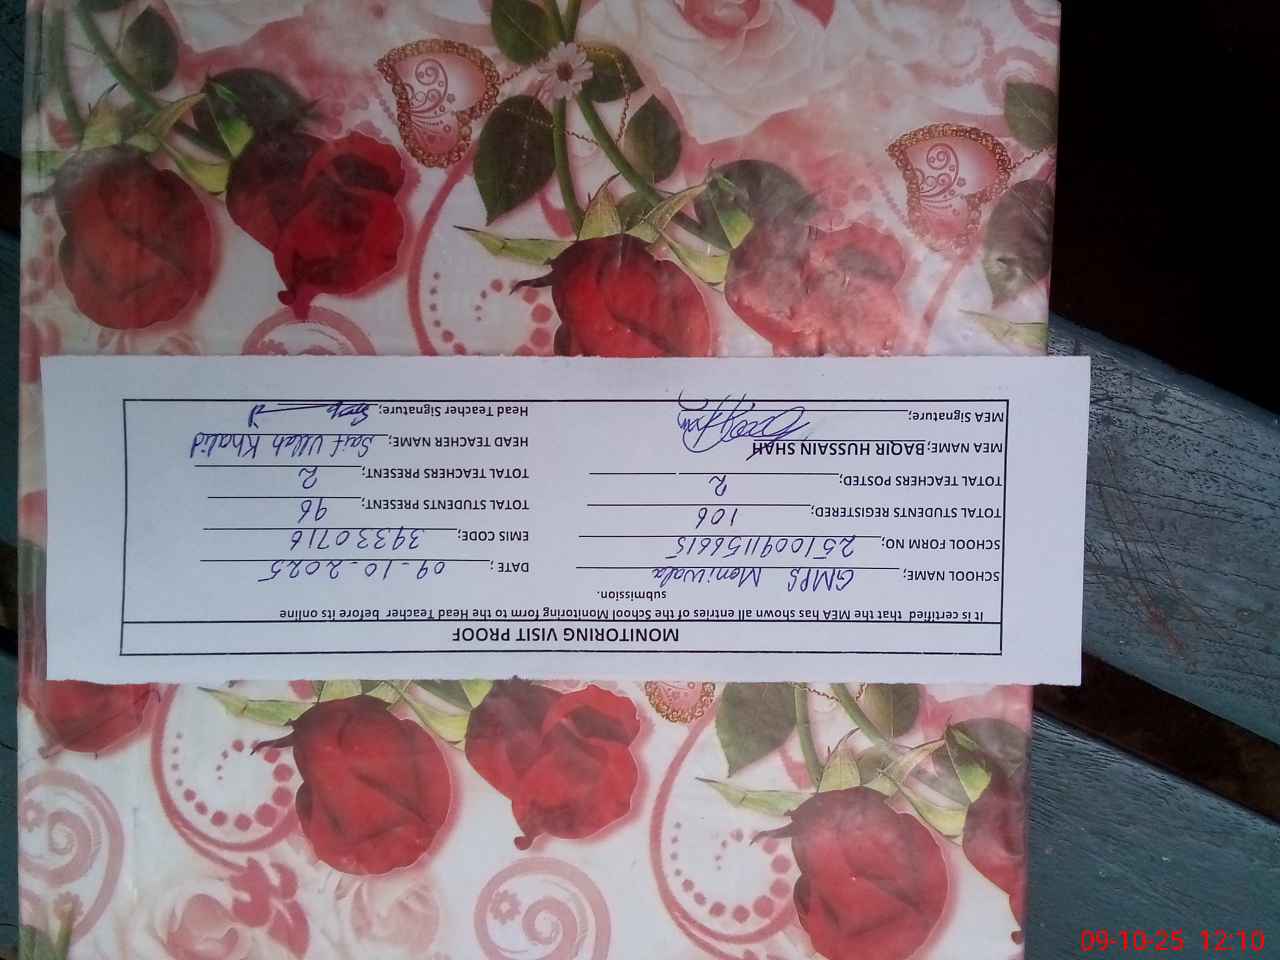 MONITORING VISIT PROOF
It is certified that the MEA has shown all entries of the School Monitoring form to the Head Teacher before its online
submission.
SCHOOL NAME; GMPS Moniwala DATE; 09-10-2025
SCHOOL FORM NO, 2510091156615 EMIS CODE; 39330716
TOTAL STUDENTS REGISTERED; 106 TOTAL STUDENTS PRESENT; 96
TOTAL TEACHERS POSTED; 2 TOTAL TEACHERS PRESENT; 2
MEA NAME; BAQIR HUSSAIN SHAH HEAD TEACHER NAME; Saif Ullah Khalid
MEA Signature; Head Teacher Signature;
09-10-25 12:10